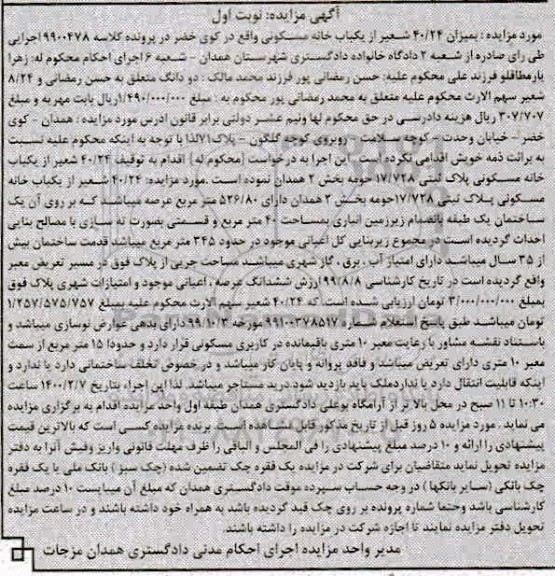 آگهی مزایده: نوبت اول
مورد مزایده : بمیزان ۴۰/۲۴ شعیر از یکباب خانه مسکونی واقع در کوی خضر در پرونده کلاسه ۹۹۰۰۴۷۸ اجرایی
طی رای صادره از شعبه ۲ دادگاه خانواده دادگستری شهرستان همدان - شعبه ۶ اجرای احکام محکوم له: زهرا
یارمطاقلو فرزند علی محکوم علیه: حسن رمضانی پور فرزند محمد مالک : دو دانگ متعلق به حسن رمضانی و ۸/۲۴
شعیر سهم الارث محکوم علیه متعلق به محمد رمضانی پور محکوم به : مبلغ ۱/۴۹۰/۰۰۰/۰۰۰ریال بابت مهریه و مبلغ
۳۰۷/۷۰۷ ریال هزینه دادرسی در حق محکوم لها ونیم عشر دولتی برابر قانون ادرس مورد مزایده : همدان - کوی
خضر - خیابان وحدت - کوچه سلامت - روبروی کوچه گلگون - پلاک۷۱لذا با توجه به اینکه محکوم علیه نسبت
به برائت ذمه خویش اقدامی نکرده است . این اجرا به درخواست [محکوم له] اقدام به توقیف ۴۰/۲۴ شعیر از یکباب
خانه مسکونی پلاک ثبتی ۱۷/۷۲۸حومه بخش ۲ همدان نموده است .مورد مزایده: ۴۰/۲۴ شعیر از یکباب خانه
مسکونی پلاک ثبتی ۱۷/۷۲۸حومه بخش ۲ همدان دارای ۵۲۶/۸۰ متر مربع عرصه میباشد که بر روی آن یک
ساختمان یک طبقه بانضمام زیرزمین انباری بمساحت ۴۰ متر مربع و قسمتی بصورت نه سازی با مصالح بنایی
احداث گردیده است در مجموع زیربنایی کل اعیانی موجود در حدود ۳۴۵ متر مربع میباشد قدمت ساختمان بیش
از ۳۵ سال میباشد دارای امتیاز آب ، برق ، گاز شهری میباشد مساحت جزیی از پلاک فوق در مسیر تعریض معبر
واقع گردیده است در تاریخ کارشناسی ۹۹/۸/۸ ارزش ششدانگ عرصه ، اعیانی موجود و امتیازات شهری پلاک فوق
بمبلغ ۳/۰۰۰/۰۰۰/۰۰۰ تومان ارزیابی شده است که ۴۰/۲۴ شعیر سهم الارث محکوم علیه بمبلغ ۱/۲۵۷/۵۷۵/۷۵۷
تومان میباشد طبق پاسخ استعلام شماره ۹۹۱۰۰۳۷۸۵۱۷ مورخه ۹۹/۱۰/۳ دارای بدهی عوارض نوسازی میباشد و
باستناد نقشه مشاور با رعایت معبر ۱۰ متری باقیمانده در کاربری مسکونی قرار دارد و حدودا ۱۵ متر مربع از سمت
معبر ۱۰ متری دارای تعریض میباشد و فاقد پروانه و پایان کار میباشد و در خصوص تخلف ساختمانی دارد یا ندارد و
اینکه قابلیت انتقال دارد یا نداردملک باید بازدید شود.درید مستاجر میباشد. لذا این اجراء بتاریخ ۱۴۰۰/۲/۷ ساعت
۱۰:۳۰ تا ۱۱ صبح در محل بالا تر از آرامگاه بوعلی دادگستری همدان طبقه اول واحد مزایده اقدام به برگزاری مزایده
می نماید . مورد مزایده ۵ روز قبل از تاریخ مذکور قابل مشاهده است. برنده مزایده کسی است که بالاترین قیمت
پیشنهادی را ارائه و ۱۰ درصد مبلغ پیشنهادی را فی المجلس و الباقی را ظرف مهلت قانونی واریز وفیش آنرا به دفتر
مزایده تحویل نماید متقاضیان برای شرکت در مزایده یک فقره چک تضمین شده (چک سبز ) بانک ملی یا یک فقره
چک بانکی (سایر بانکها ) در وجه حساب سپرده موقت دادگستری همدان که مبلغ آن میبایست ۱۰ درصد مبلغ
کارشناسی باشد وحتما شماره پرونده بر روی چک قید گردیده باشد به همراه خود داشته باشند و در ساعت مزایده
تحویل دفتر مزایده نمایند تا اجازه شرکت در مزایده را داشته باشند.
مدیر واحد مزایده اجرای احکام مدنی دادگستری همدان مزجات